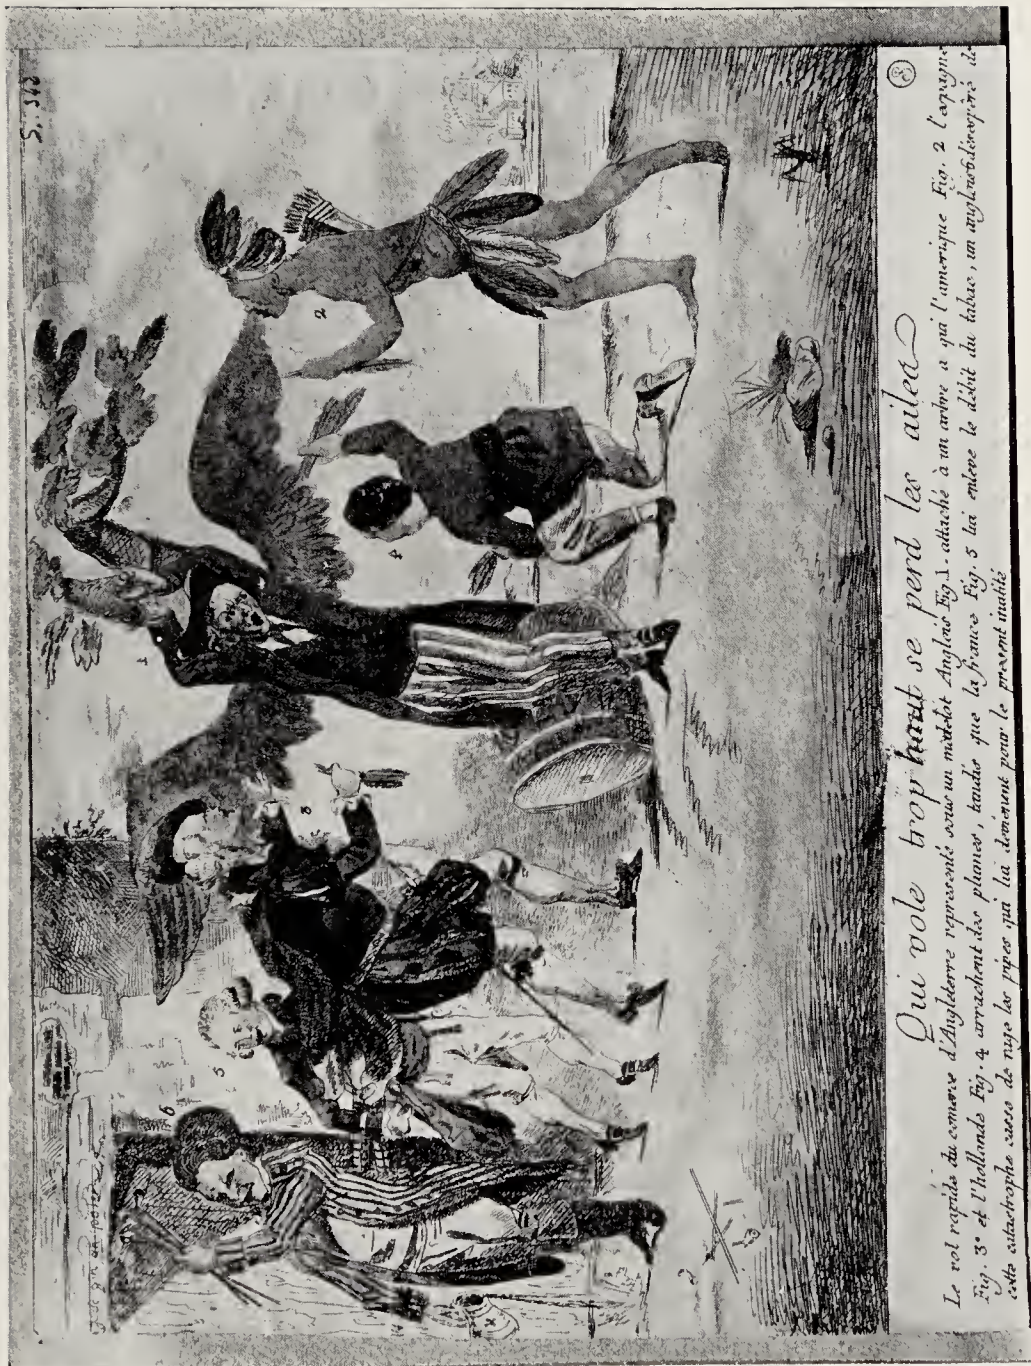 S. 362
1
2
3
4
5
6
Europe
Qui vole trop haut se perd les ailes
Le vol rapide du comerce d'Angleterre representé sous un matelot Anglois Fig. 1. attaché à un arbre a qui l'amerique Fig. 2 l'espagne
Fig. 3e et l'hollande Fig. 4 arrachent des plumes, tandis que la france Fig. 5 lui enleve le débit du tabac, un anglois 6 désespéré de
cette catachrophe casse de rage les pipes qui lui devienent pour le present inutile
3